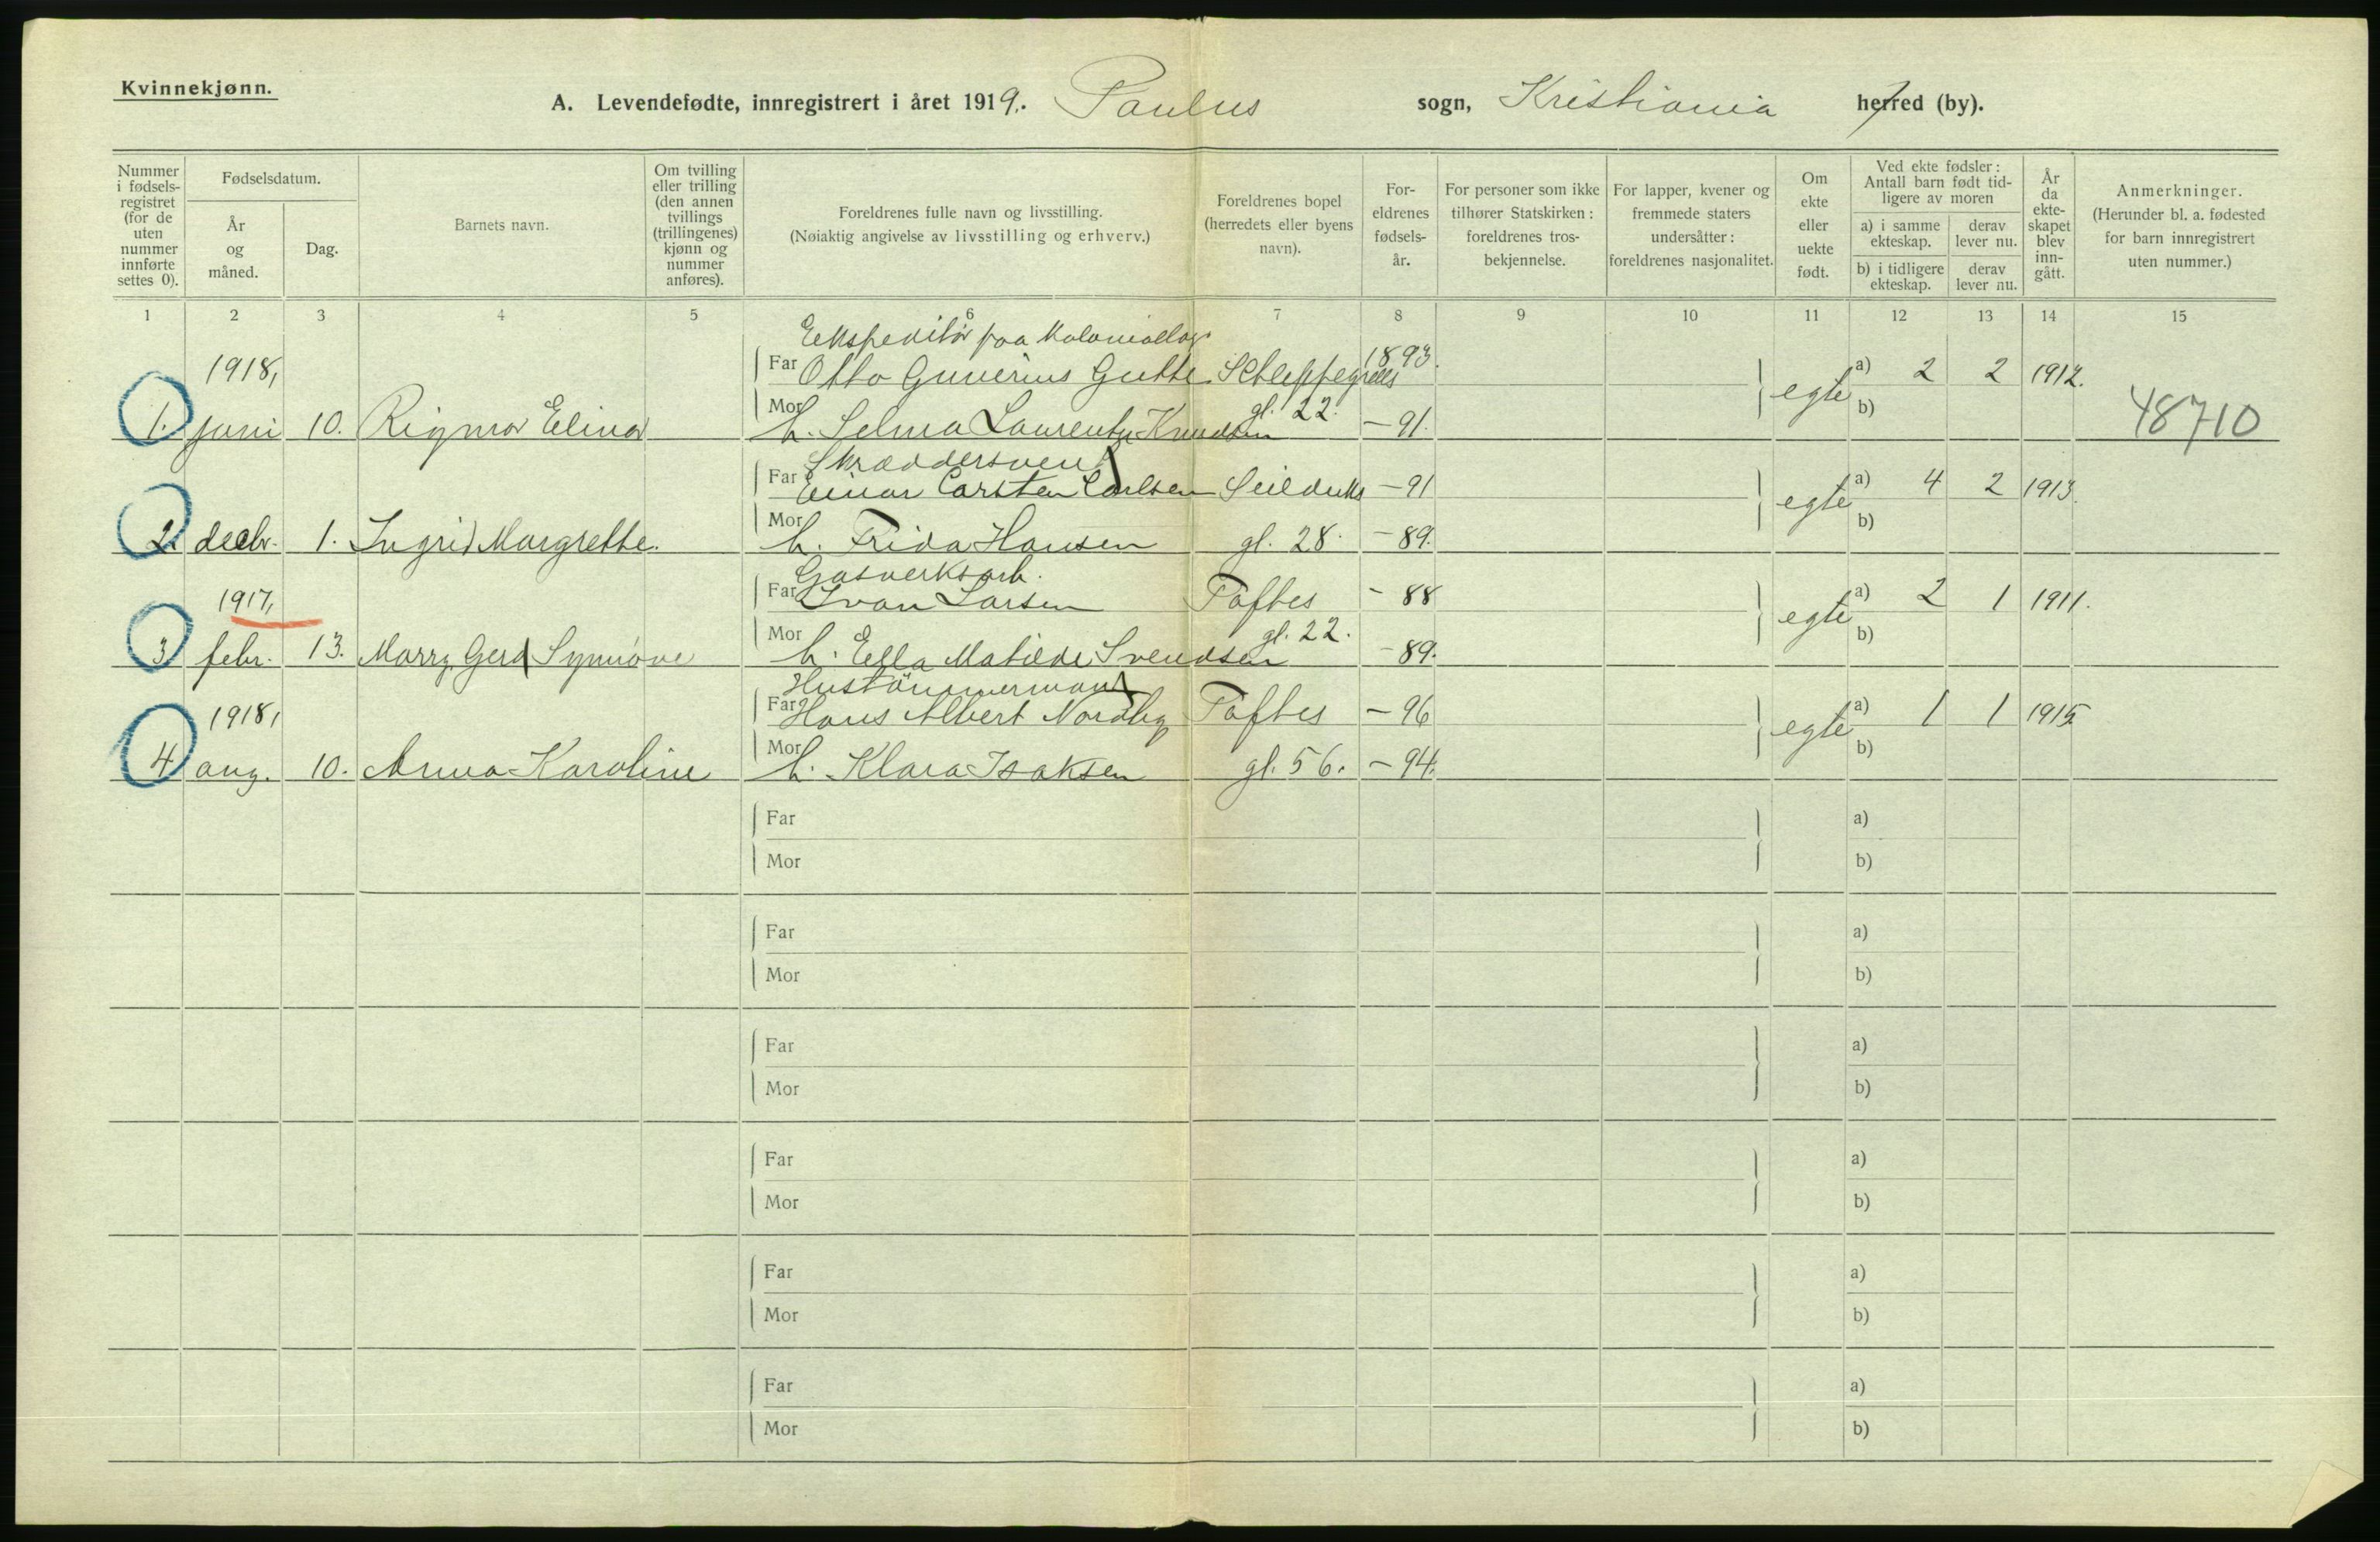 Kvinnekjønn.
A. Levendefødte, innregistrert i året 1919. Paulus sogn, Kristiania herred (by).
Nummer i fødsels-registret (for de uten nummer innførte settes 0).
Fødselsdatum.
År og måned.
Dag.
Barnets navn.
Om tvilling eller trilling (den annen tvillings (trillingenes) kjønn og nummer anføres).
Foreldrenes fulle navn og livsstilling.
(Nøiaktig angivelse av livsstilling og erhverv.)
Foreldrenes bopel (herredets eller byens navn).
For-eldrenes fødsels-år.
For personer som ikke tilhører Statskirken: foreldrenes tros-bekjennelse.
For lapper, kvener og fremmede staters undersåtter: foreldrenes nasjonalitet.
Om ekte eller uekte født.
Ved ekte fødsler: Antall barn født tid-ligere av moren
a) i samme ekteskap.
derav lever nu.
b) i tidligere ekteskap.
derav lever nu.
År da ekte-skapet blev inn-gått.
Anmerkninger.
(Herunder bl. a. fødested for barn innregistrert uten nummer.)
1 2 3 4 5 6 7 8 9 10 11 12 13 14 15
Ekspeditør paa Koloniallag
1918, Far Otto Gunerius Gutte Schleppegrells 1893. egte a) 2 2 1912.
1. juni 10. Rigmor Elinor Mor h. Selma Laurentze Knudsen gl. 22. - 91. b) 48710
Skræddersvend
Far Einar Carsten Carlsen Seilduks - 91 egte a) 4 2 1913.
2. decbr. 1. Ingrid Margrethe. Mor h. Frida Hansen gl. 28. - 89. b)
Gasverksarb.
1917, Far Ivan Larsen Toftes - 88 egte a) 2 1 1911.
3. febr. 13. Marry Gerd Synnøve Mor h. Ella Matilde Svendsen gl. 22. - 89. b)
Hustömmermand
1918, Far Hans Albert Nordby Toftes - 96 egte a) 1 1 1915.
4 aug. 10. Anna Karoline Mor h. Klara Isaksen gl. 56. - 94. b)
Far a)
Mor b)
Far a)
Mor b)
Far a)
Mor b)
Far a)
Mor b)
Far a)
Mor b)
Far a)
Mor b)